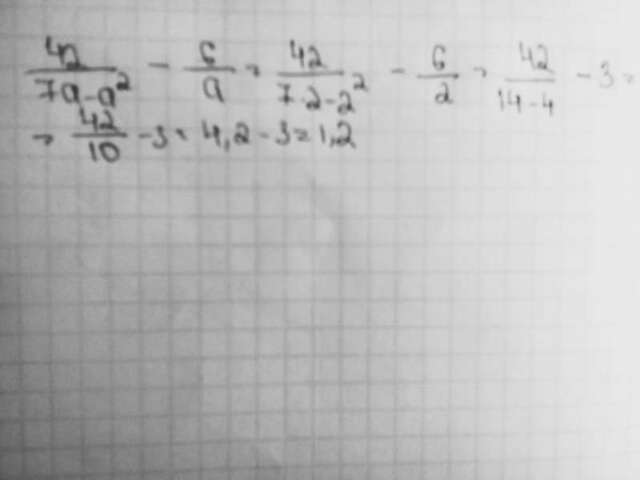 42/(7a-a²) - 6/a = 42/(7·2-2²) - 6/2 = 42/(14-4) - 3 =
= 42/10 - 3 = 4,2 - 3 = 1,2